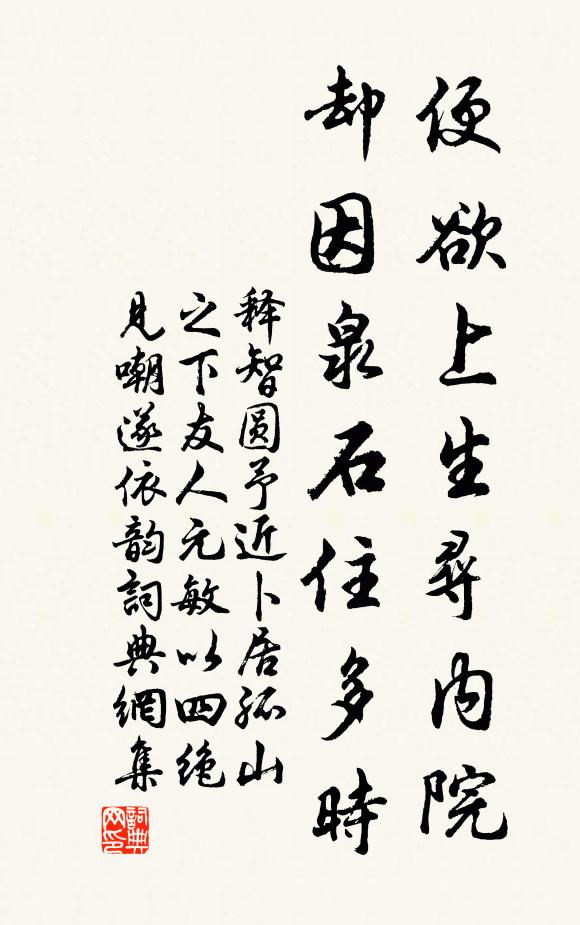 便欲上生尋内院
却因泉石住多時
释智圆予近卜居孤山
之下友人元敏以四绝
见嘲遂依韵詞典網集
詞典网印